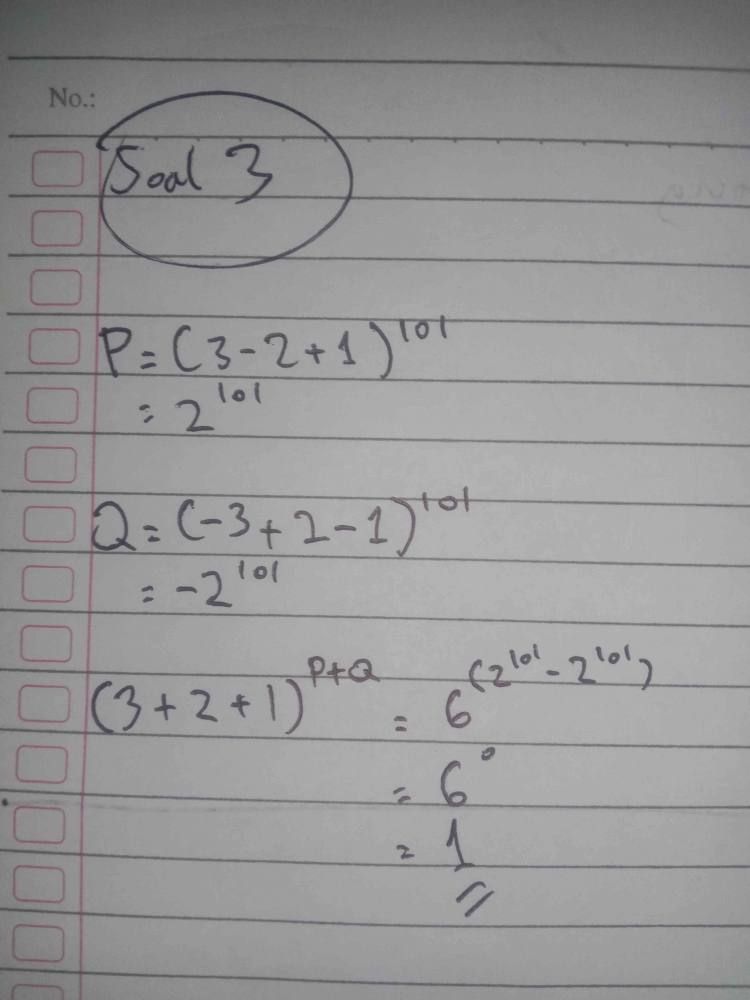 No.:
Soal 3
P = (3 - 2 + 1)^101
= 2^101
Q = (-3 + 2 - 1)^101
= -2^101
(3 + 2 + 1)^P+Q = 6^(2^101 - 2^101)
= 6^0
= 1